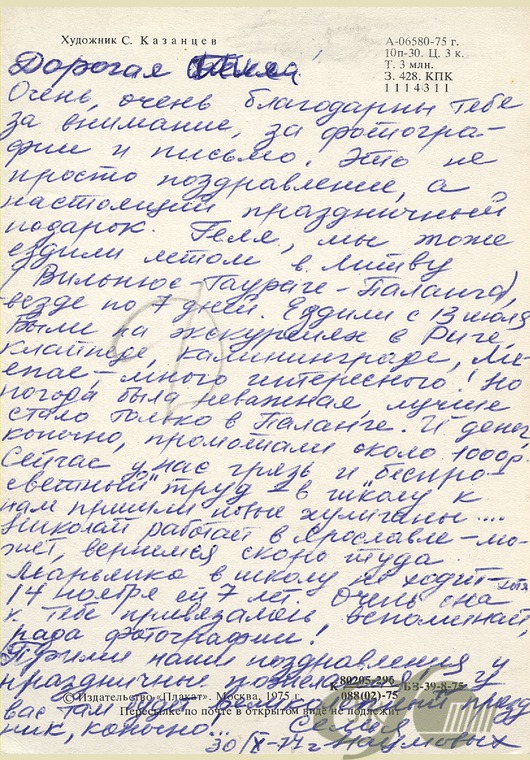 Художник С. Казанцев
А-06580-75 г.
10п-30. Ц. 3 к.
Т. 3 млн.
З. 428. КПК
1114311
Дорогая Геля!
Очень, очень благодарны тебе
за внимание, за фотогра-
фии и письмо. Это не
просто поздравление, а
настоящий праздничный
подарок. Геля, мы тоже
ездили летом в Литву
(Вильнюс-Таураге-Паланга),
везде по 7 дней. Ездили с 13 июля
Были на экскурсиях в Риге,
Клайпеде, Калининграде, Ли
епае, - много интересного! Но
погода была неважная, лучше
стало только в Паланге. И денег
конечно, промотали около 1000 р.
Сейчас у нас грязь и беспро-
светный труд - в школу к
нам пришли новые хулиганы....
Николай работает в Ярославле - мо-
жет, вернемся скоро туда.
Марьянка в школу не ходит - хотя
14 ноября ей 7 лет. Очень она
к Тебе привязалась, вспоминает
рада фотографии!
Прими наши поздравления и
праздничные
80205-296
К БЗ-39-8-75
088(02)-75
© Издательство «Плакат». Москва, 1975 г.
вас там будет празд
Пересылке по почте в открытом виде не подлежит
ник, конечно... Семья
30/X-77 г. Наумовых